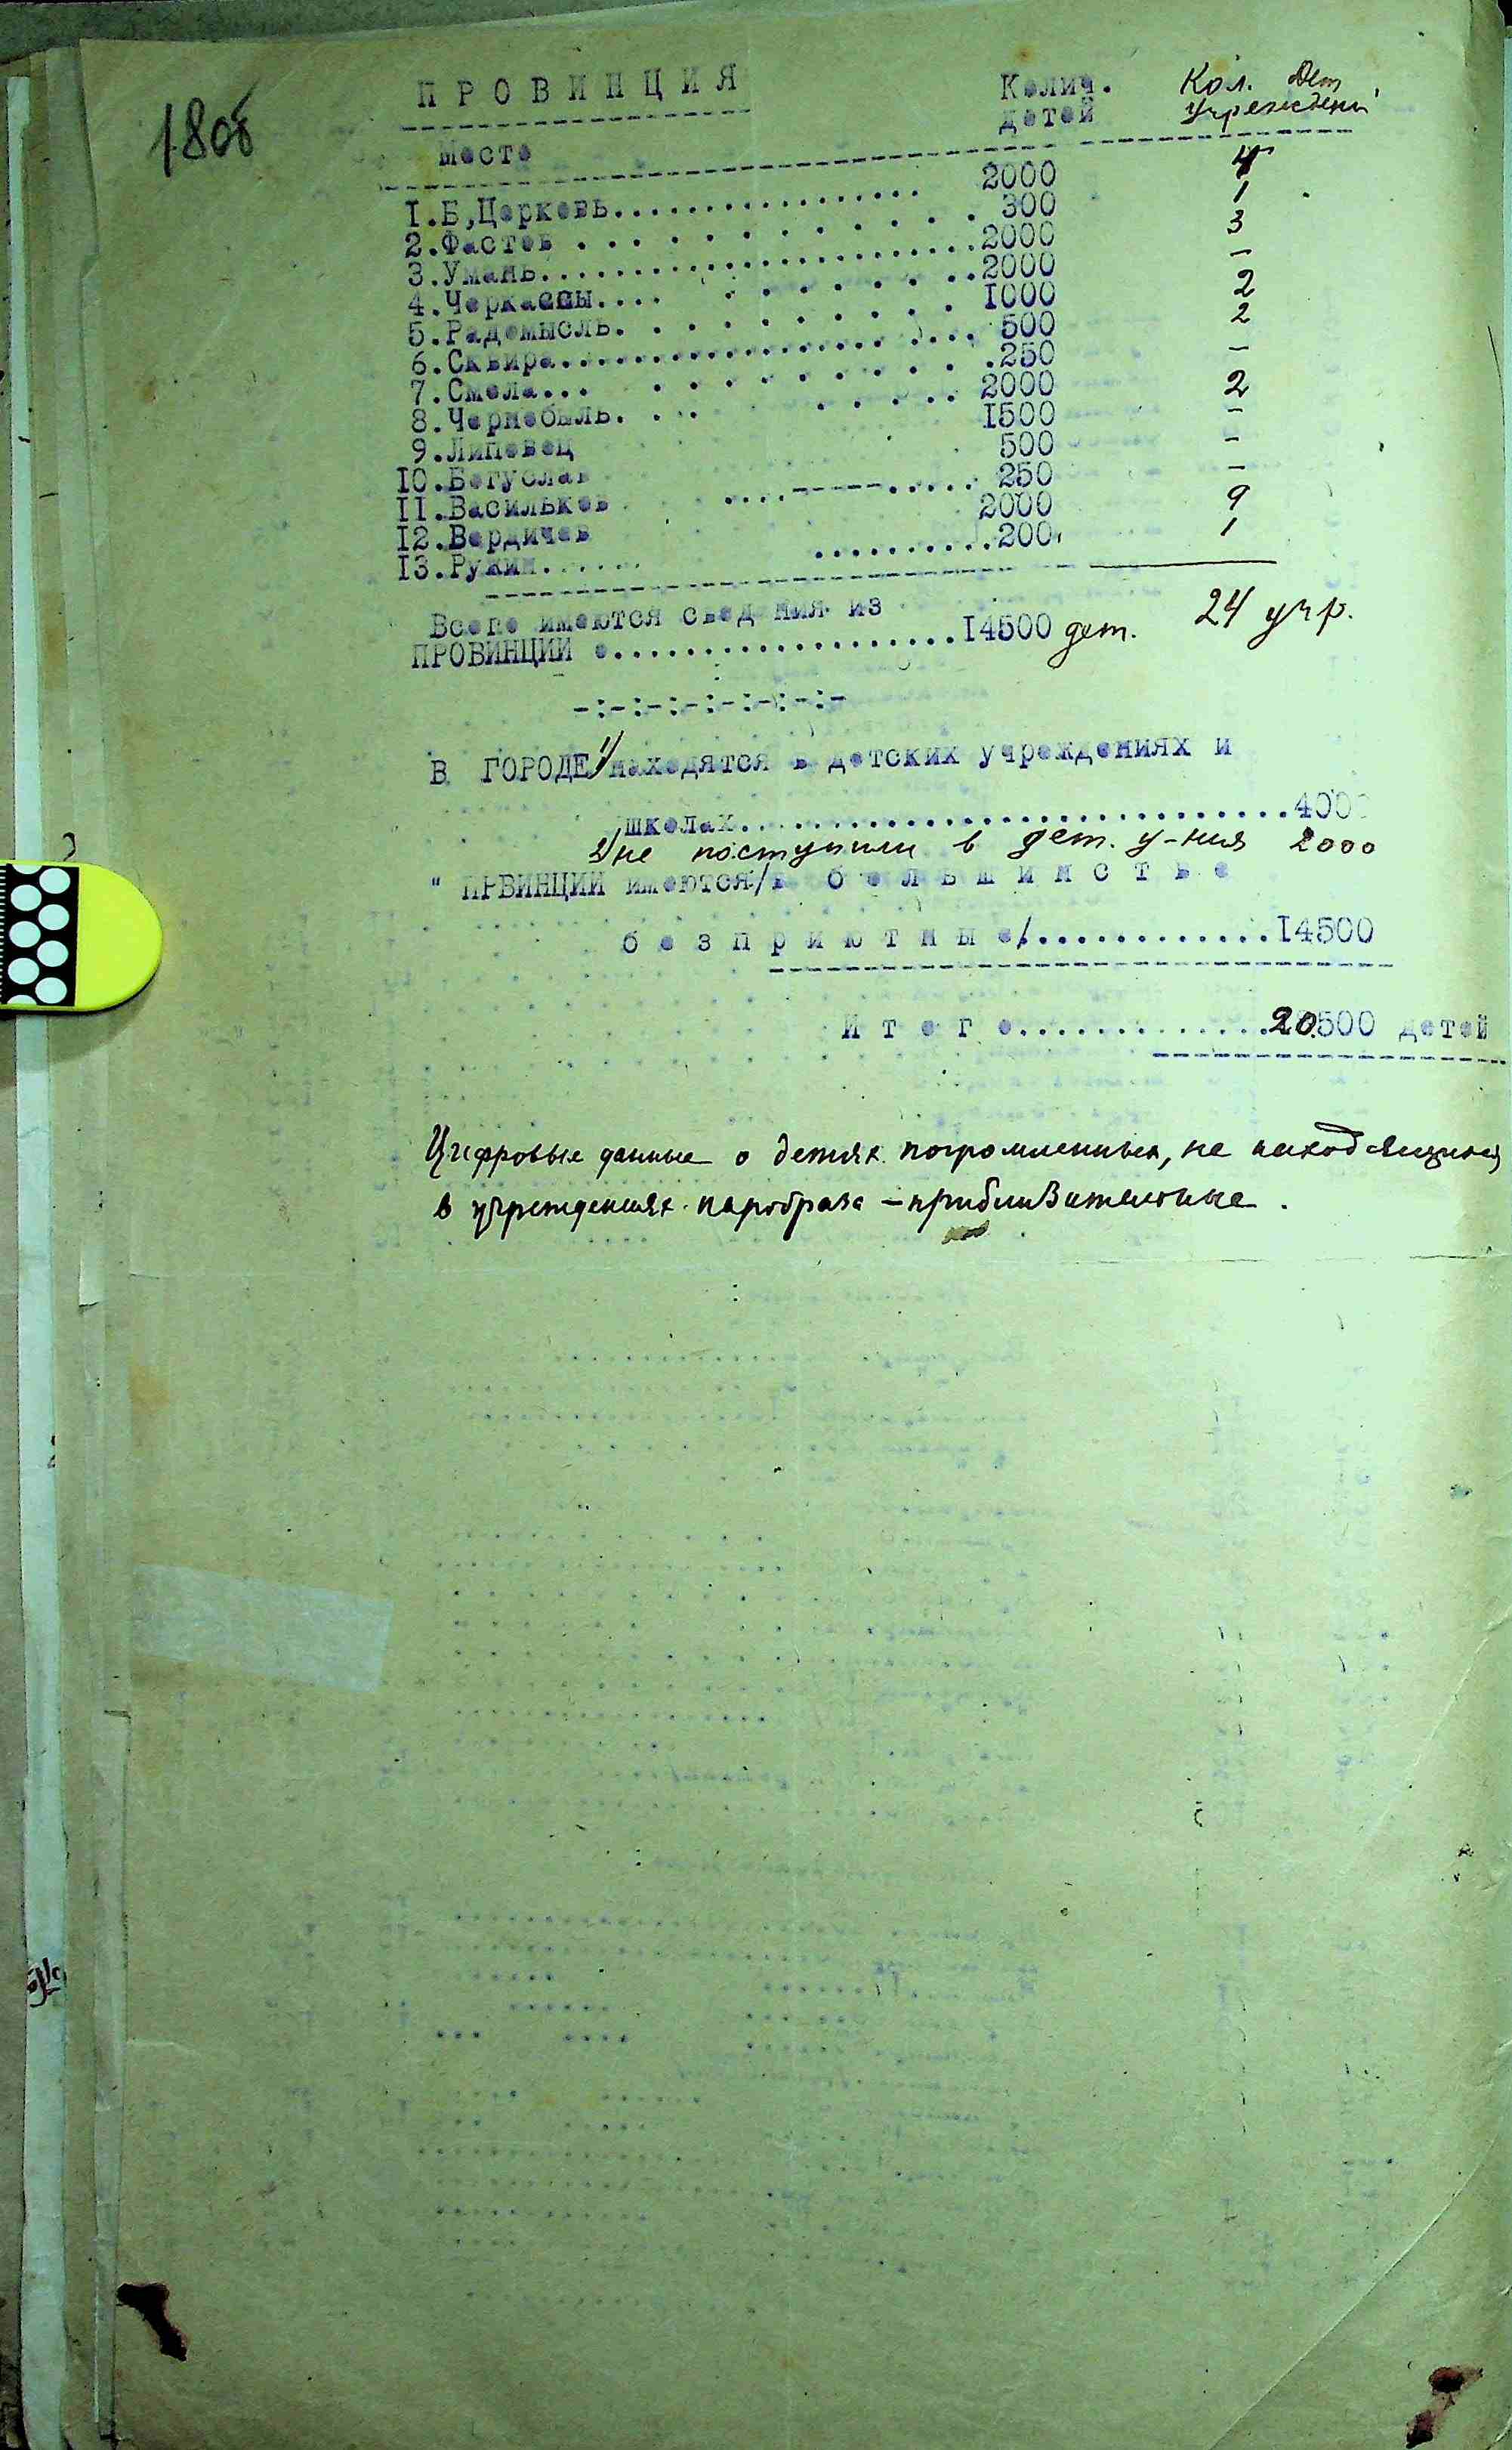 180б
П Р О В И Н Ц И Я Колич. Кол. Дет.
детей Учреждений
Место
1.Б,Церковь................. 2000 4
2.Фастов . . . . . . . . . . . . . 300 1
3.Умань........................2000 3
4.Черкассы.... . . . . . . ..2000 -
5.Радомысль. . . . . . . . . . . 1000 2
6.Сквира...................... .... 500 2
7.Смела... . . . . . . . . . .250 -
8.Чернобыль. . .. . . . . .. 2000 2
9.Липовец 1500 -
10.Богуслав 500 -
11.Васильков ....-----..... 250 -
12.Бердичев 2000 9
13.Ружин....... ..........200. 1
Всего имеются сведения из
ПРОВИНЦИИ ....................14500 дет. 24 учр.
-:-:-:-:-:-:-:-
В ГОРОДЕ 1/находятся в детских учреждениях и
школах...............................4000
2/не поступили в дет. у-ния 2000
" ПРВИНЦИИ имеются/в б о л ь ш и н с т в е
б е з п р и ю т н ы е/.............14500
И т о г о..............20.500 детей
Цифровые данные о детях погромленных, не находящихся
в учреждениях наробраза - приблизительные.